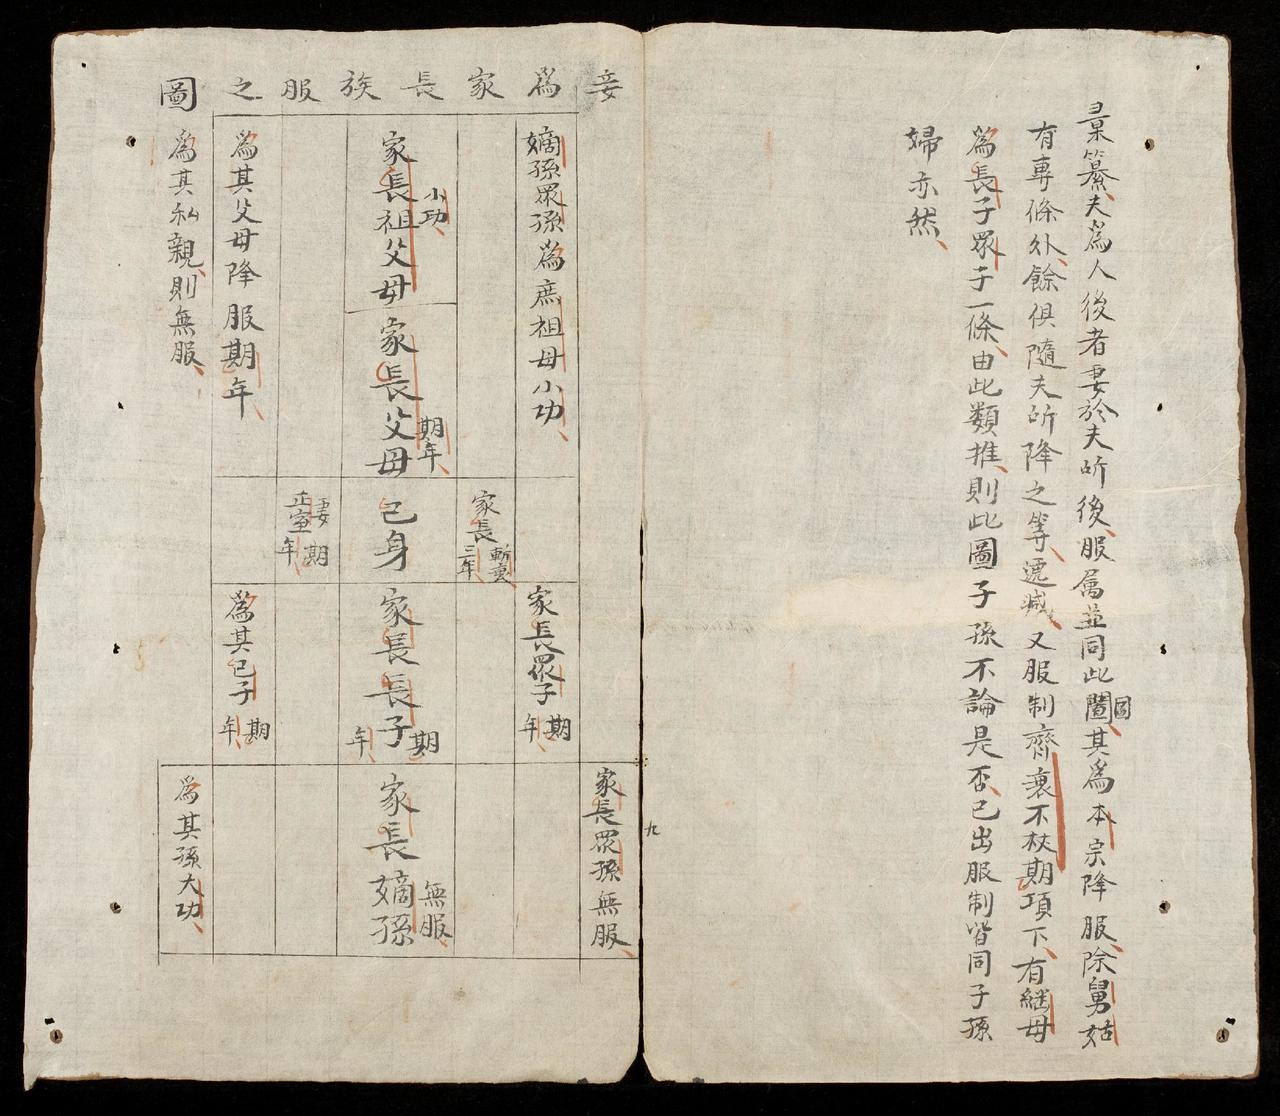 彙纂夫為人後者妻於夫所後服属並同此圖其為本宗降服除舅姑
圖
有專條外餘俱隨夫所降之等遞減又服制齊衰不杖期項下有繼母
為長子眾子一條由此類推則此圖子孫不論是否已出服制皆同子孫
婦亦然
九
妾為家長族服之圖
嫡孫眾孫為庶祖母小功
家長祖父母
小功
家長父母
期年
為其父母降服期年
為其私親則無服
家長
斬衰三年
己身
正室
妻
期年
家長眾子
期年
家長長子
期年
為其己子
期年
家長眾孫無服
家長嫡孫
無服
為其孫大功